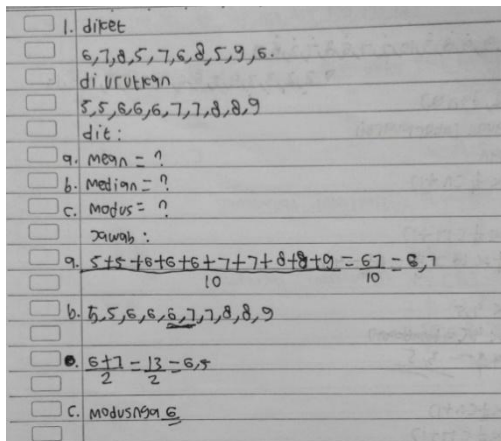 1. diket
6,7,8,5,7,6,8,5,9,6.
diurutkan
5,5,6,6,6,7,7,8,8,9
dit:
a. mean = ?
b. median = ?
c. modus = ?
Jawab :
a. 5+5+6+6+6+7+7+8+8+9/10 = 67/10 = 6,7
b. 5,5,6,6,6,7,7,8,8,9
6+7/2 = 13/2 = 6,5
c. modusnya 6